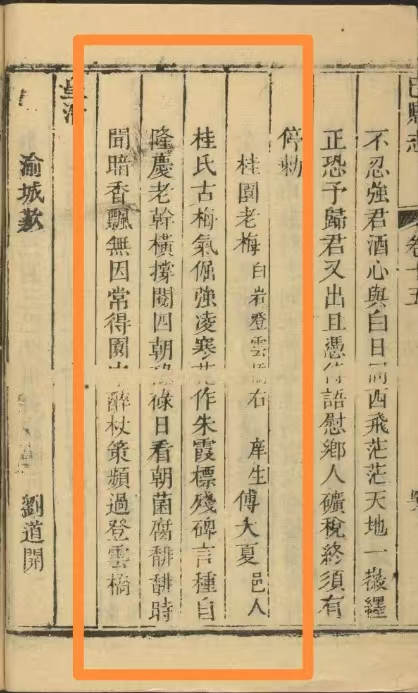 巴縣志 卷十五
不忍強君酒心與白日同西飛茫茫天地一徽纆
正恐予歸君又出且憑傳語慰鄉人礦稅終須有
停勅
桂園老梅 白岩登雲橋右 庠生傅大夏邑人
桂氏古梅氣倔強凌寒花作朱霞標殘碑言種自
隆慶老幹橫撐閱四朝 日看朝菌腐馡馡時
聞暗香飄無因常得園中醉杖策頻過登雲橋
皇清
渝城歎 劉道開